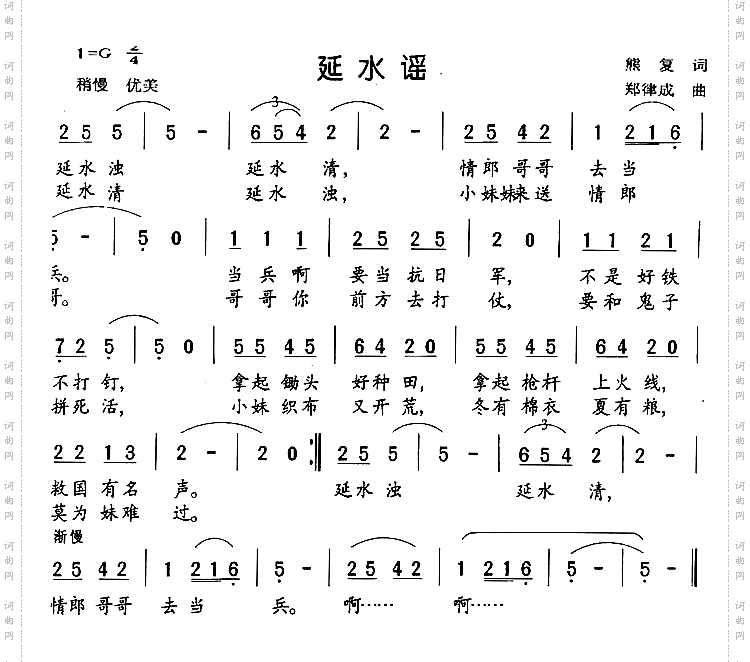 延水谣
1=G 2/4
稍慢 优美
熊 复 词
郑律成 曲
2 5 5 | 5 - | 6 5 4 2 | 2 - | 2 5 4 2 | 1 2 1 6 |
延水浊 延水 清, 情郎哥哥 去当
延水清 延水 浊, 小妹妹来送 情郎
5 - | 5 0 | 1 1 1 | 2 5 2 5 | 2 0 | 1 1 2 1 |
兵。 当兵啊 要当抗日 军, 不是好铁
哥。 哥哥你 前方去打 仗, 要和鬼子
7 2 5 | 5 0 | 5 5 4 5 | 6 4 2 0 | 5 5 4 5 | 6 4 2 0 |
不打钉, 拿起锄头 好种田, 拿起枪杆 上火线,
拼死活, 小妹织布 又开荒, 冬有棉衣 夏有粮,
2 2 1 3 | 2 - | 2 0 :| 2 5 5 | 5 - | 6 5 4 2 | 2 - |
救国有名 声。 延水浊 延水 清,
莫为妹难 过。
渐慢
2 5 4 2 | 1 2 1 6 | 5 - | 2 5 4 2 | 1 2 1 6 | 5 - | 5 - |
情郎哥哥 去当 兵。 啊…… 啊……
词曲网